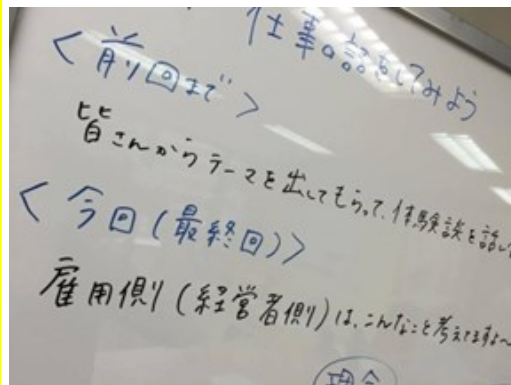 仕事の話をしてみよう
<前回まで>
皆さんからテーマを出してもらって、体験談を話し
<今回(最終回)>
雇用側(経営者側)は、こんなこと考えてますよ〜
理念